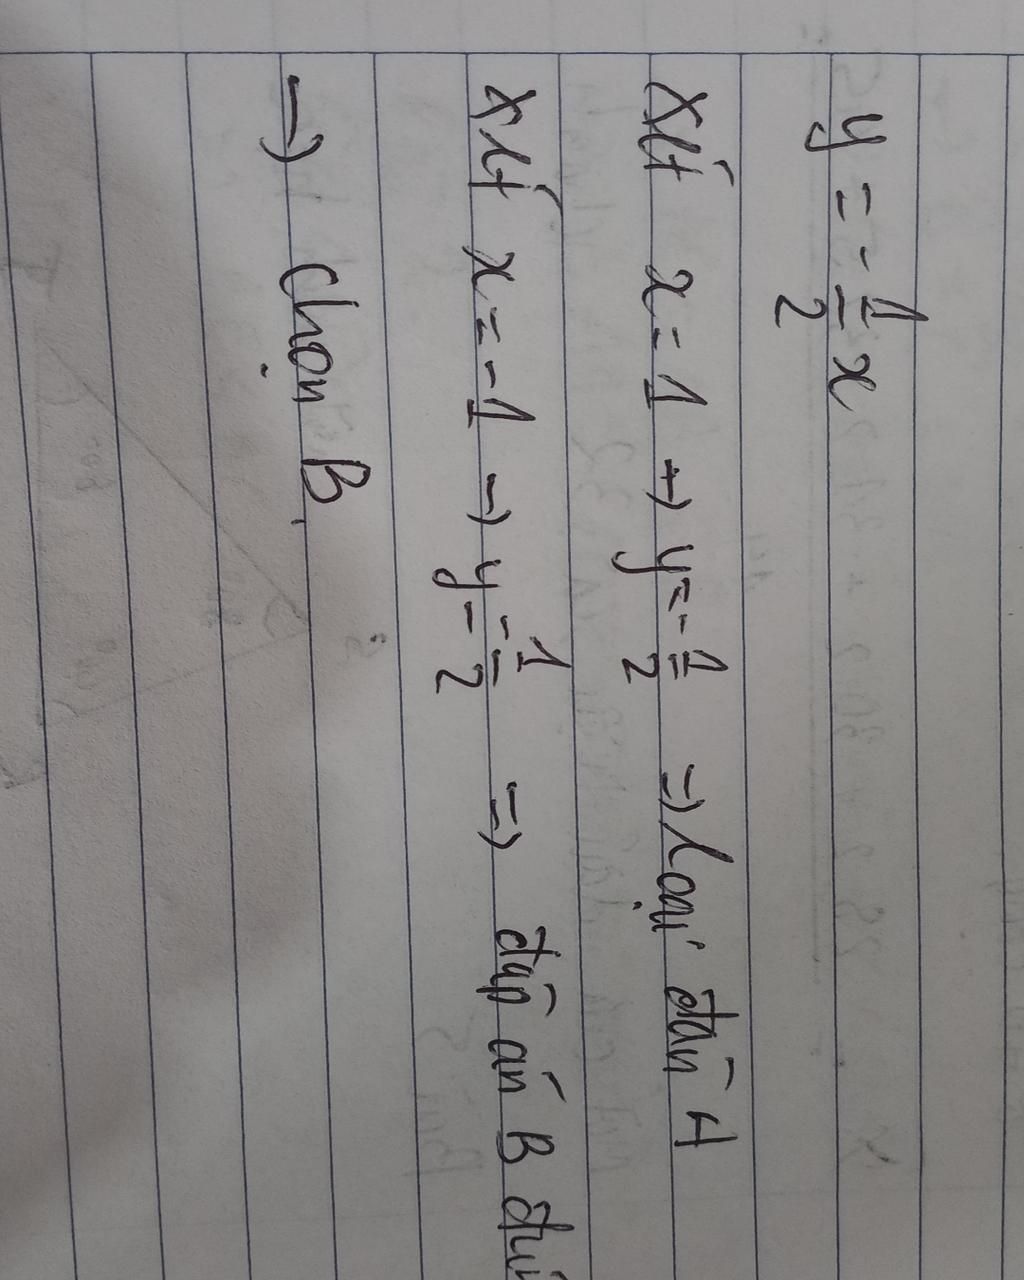 y = -1/2 x
Xét x = 1 → y = -1/2 => Loại đán A
Xét x = -1 → y = -1/2 => đáp án B
→ chọn B.